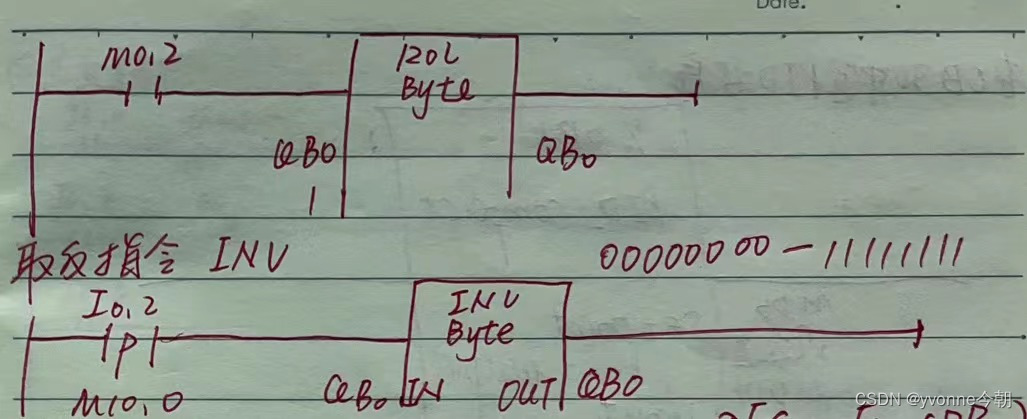 Date.
M0.2
ROL
Byte
QB0
QB0
1
取反指令 INV 00000000—11111111
I0.2
INV
P
Byte
M10.0
QB0 IN OUT QB0
CSDN @yvonne今朝